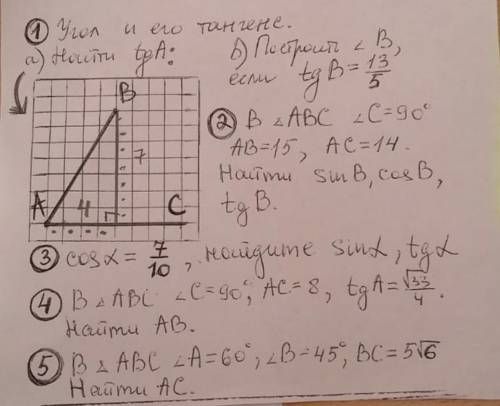 ① Угол и его тангенс.
а) Найти tgA:
b) Построить ∠ B,
если tg B = 13/5
B
7
A 4 C
② В △ABC ∠C=90°
AB=15, AC=14.
Найти sinB, cosB,
tg B.
③ cosα = 7/10, найдите sinα, tgα
④ В △ABC ∠C=90°, AC=8, tgA=√33/4.
Найти AB.
⑤ В △ ABC ∠A=60°, ∠B=45°, BC=5√6
Найти AC.